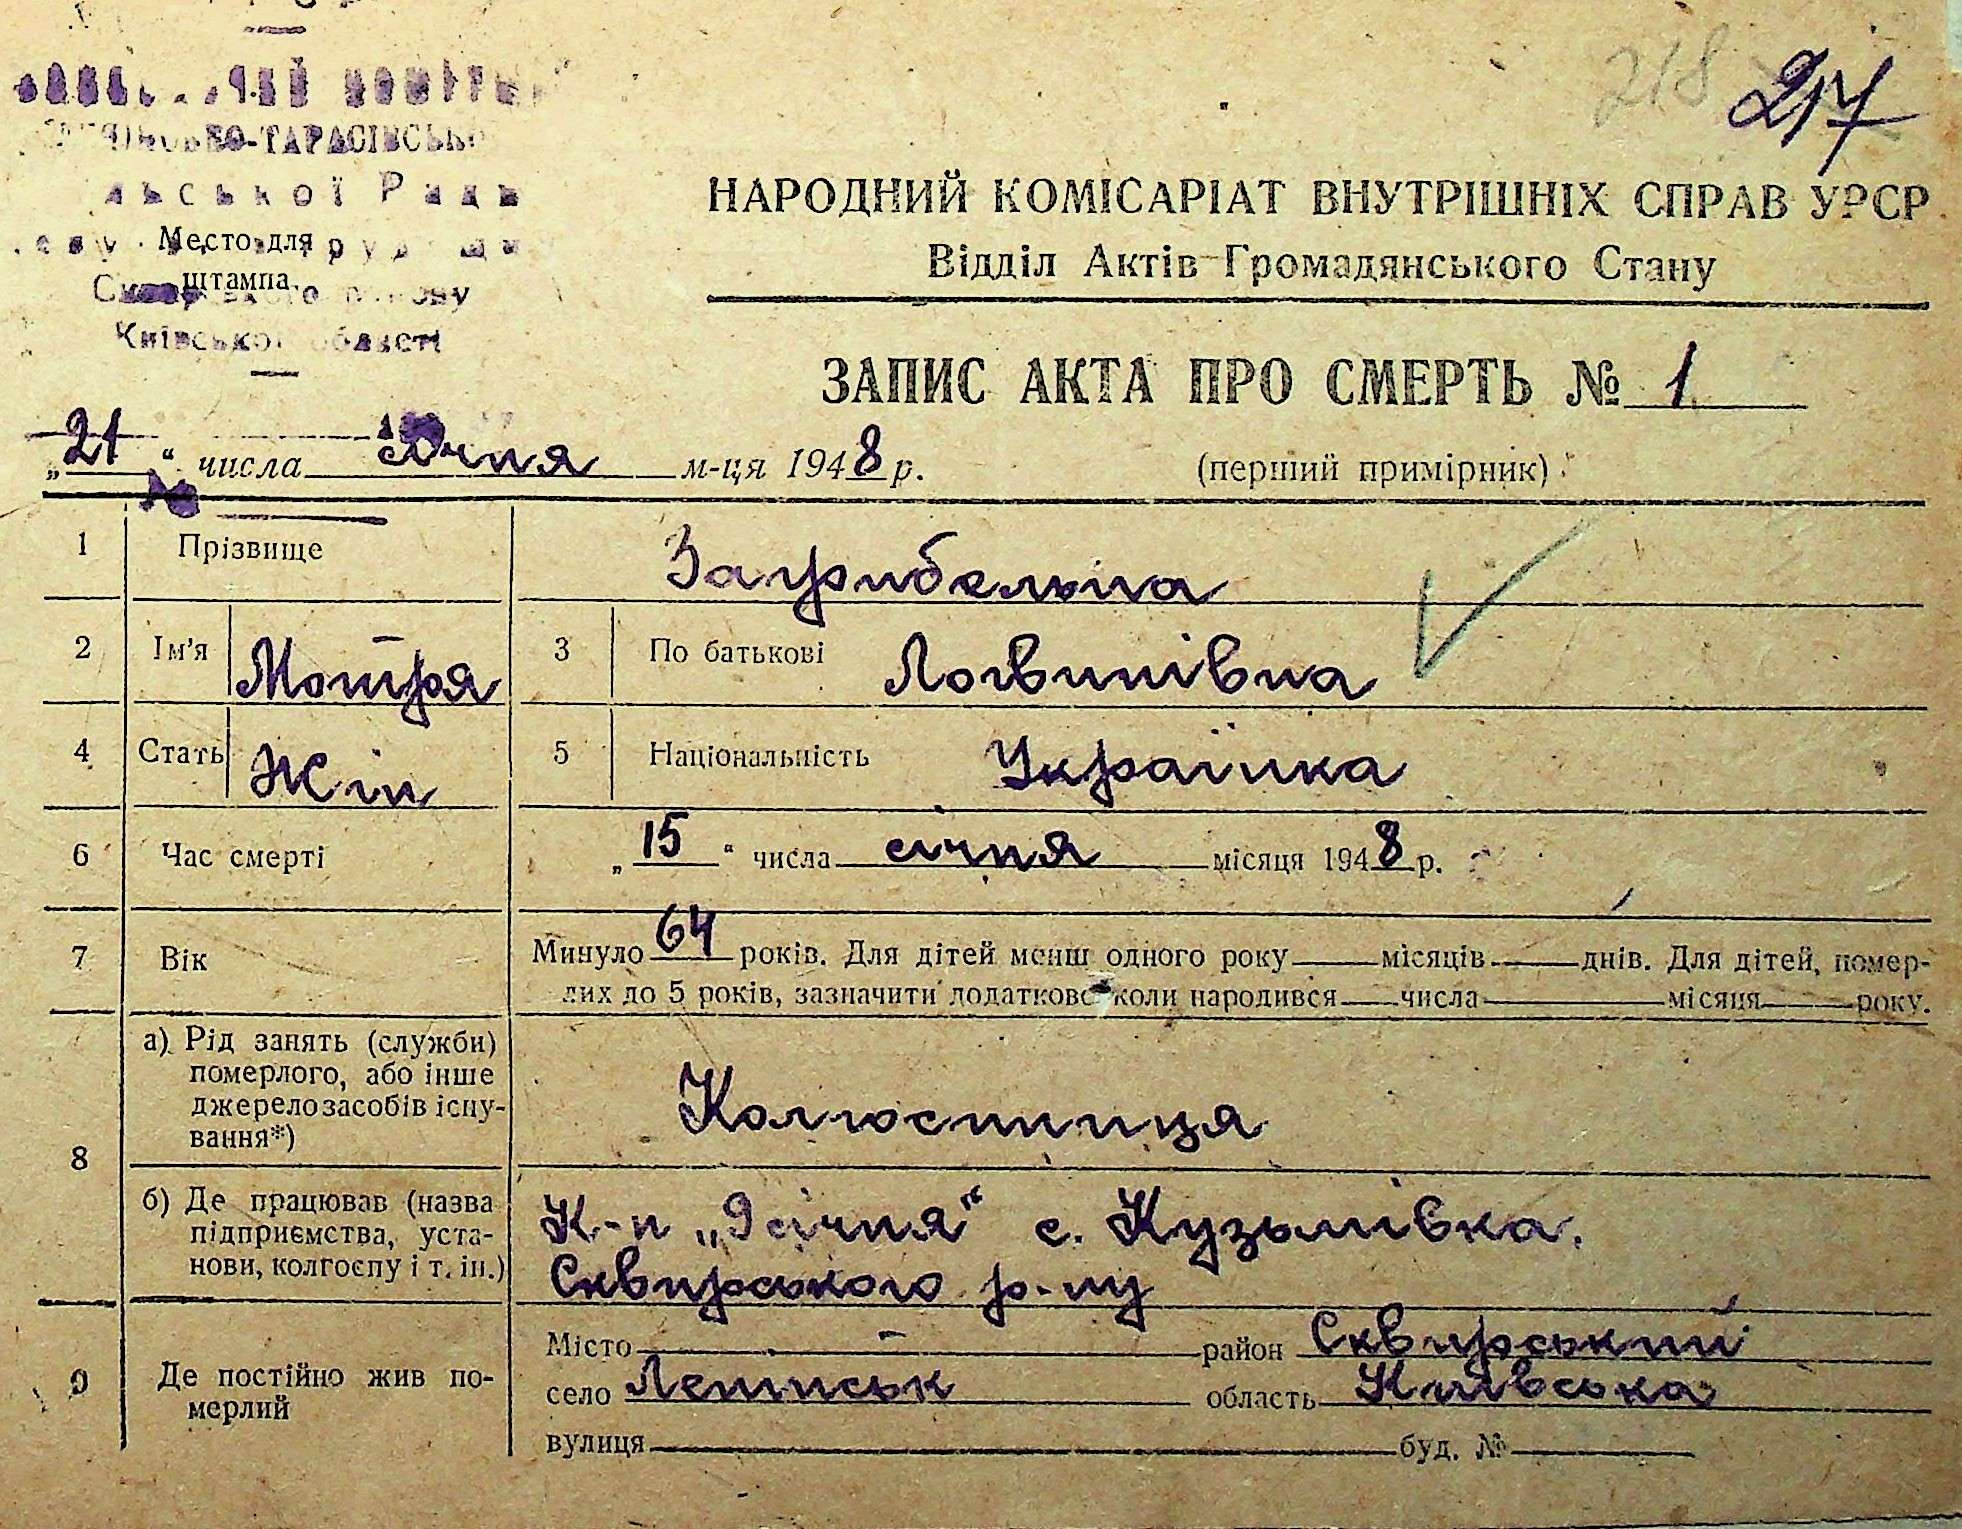 218 217
Київської області
НАРОДНИЙ КОМІСАРІАТ ВНУТРІШНІХ СПРАВ УРСР
Відділ Актів Громадянського Стану
Место для
штампа
ЗАПИС АКТА ПРО СМЕРТЬ № 1
„21“ числа січня м-ця 1948 р. (перший примірник)
1 Прізвище Загрибельна
2 Ім'я Мотря 3 По батькові Логвинівна
4 Стать Жін 5 Національність Українка
6 Час смерті „15“ числа січня місяця 1948 р.
7 Вік Минуло 64 років. Для дітей менш одного року місяців днів. Для дітей, помер-
лих до 5 років, зазначити додатково коли народився числа місяця року.
8 а) Рід занять (служби)
померлого, або інше
джерело засобів існу-
вання*)
Колгоспниця
б) Де працював (назва
підприємства, уста-
нови, колгоспу і т. ін.)
К-п „9 січня“ с. Кузьмівка.
Сквирського р-ну
9 Де постійно жив по-
мерлий
Місто — район Сквирський
село Ленинськ область Київська
вулиця буд. №